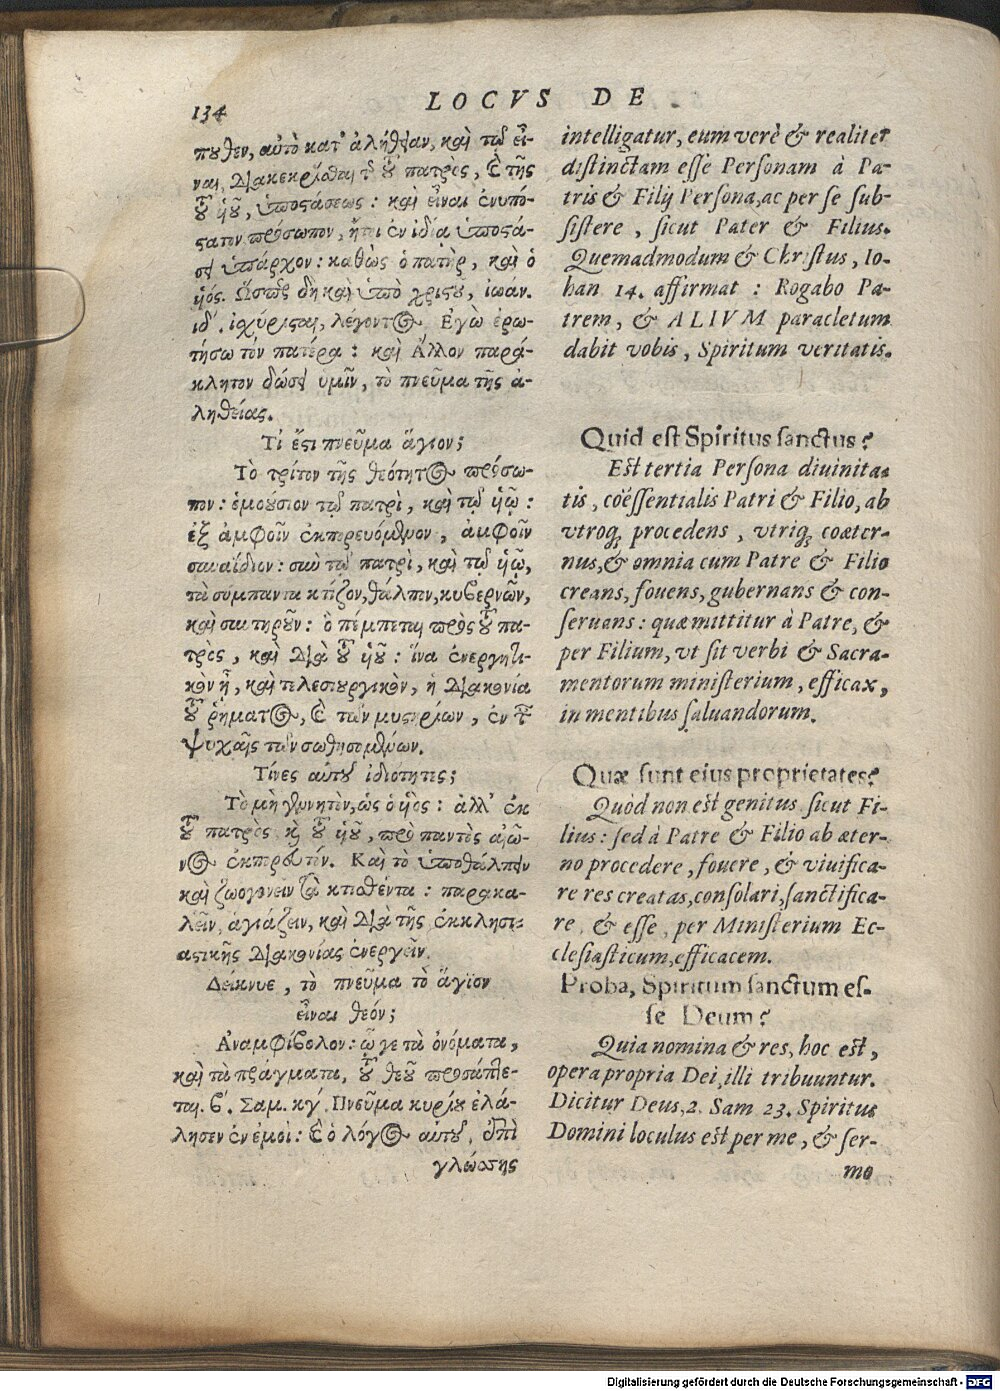 134
LOCVS DE
πυθεν, αὐτὸ κατ' ἀλήθειαν, καὶ τῷ εἶ-
ναι, διακεκρίσθαι τ͂ τοῦ πατρὸς, καὶ τῆς
τοῦ υἱοῦ, ὑποστάσεως: καὶ εἶναι ἐνυπό-
στατον πρόσωπον, ἤτοι ἐν ἰδία ὑποστά-
σει ὑπάρχον: καθὼς ὁ πατὴρ, καὶ ὁ
υἱός. Ὥσπερ δὴ καὶ ὑπὸ χριστοῦ, ἰωάν.
ιδ'. ἰσχύρισται, λέγοντος Ἐγὼ ἐρω-
τήσω τὸν πατέρα: καὶ Ἄλλον παρά-
κλητον δώσει υμῖν, τὸ πνεῦμα τῆς ἀ-
ληθείας.
Τί ἔστι πνεῦμα ἅγιον;
Τὸ τρίτον τῆς θεότητος πρόσω-
πον: ὁμούσιον τῷ πατρὶ, καὶ τῷ υἱῷ:
ἐξ ἀμφοῖν ἐκπορευόμενον, ἀμφοῖν
συναΐδιον: σὺν τῷ πατρὶ, καὶ τῷ υἱῷ,
τὰ σύμπαντα κτίζον, θάλπον, κυβερνῶν,
καὶ συντηροῦν: ὃ πέμπεται πρὸς τοῦ πα-
τρὸς, καὶ διὰ τοῦ υἱοῦ: ἵνα ἐνεργητι-
κὸν ᾖ, καὶ τελεσιουργικὸν, ἡ διακονία
τοῦ ῥήματος, καὶ τῶν μυστηρίων, ἐν τ͂
ψυχαῖς τῶν σωθησομένων.
Τίνες αὐτοῦ ἰδιότητες;
Τὸ μὴ γεννητὸν, ὡς ὁ υἱός: ἀλλ' ἐκ
τοῦ πατρὸς καὶ τοῦ υἱοῦ, πρὸ παντὸς αἰῶ-
νος ἐκπορευτόν. Καὶ τὸ ὑποθάλπειν
καὶ ζωογονεῖν τὰ κτισθέντα: παρακα-
λεῖν, ἁγιάζειν, καὶ διὰ τῆς ἐκκλησι-
αστικῆς διακονίας ἐνεργεῖν.
Δείκνυε, τὸ πνεῦμα τὸ ἅγιον
εἶναι θεόν;
Ἀναμφίβολον: ᾧ γε τὰ ὀνόματα,
καὶ τὰ πράγματα, τοῦ θεοῦ προσάπτε-
ται. β'. Σαμ. κγ'. Πνεῦμα κυρίου ἐλά-
λησεν ἐν ἐμοί: καὶ ὁ λόγος αὐτοῦ, ἐπὶ
γλώσσης
intelligatur, eum verè & realiter
distinctam esse Personam à Pa-
tris & Filij Persona, ac per se sub-
sistere, sicut Pater & Filius.
Quemadmodum & Christus, Io-
han 14. affirmat: Rogabo Pa-
trem, & ALIVM paracletum
dabit vobis, Spiritum veritatis.
Quid est Spiritus sanctus?
Est tertia Persona diuinita-
tis, coëssentialis Patri & Filio, ab
vtroq; procedens, vtriq; coæter-
nus, & omnia cum Patre & Filio
creans, fouens, gubernans & con-
seruans: quæ mittitur à Patre, &
per Filium, vt sit verbi & Sacra-
mentorum ministerium, efficax,
in mentibus saluandorum.
Quæ sunt eius proprietates?
Quòd non est genitus sicut Fi-
lius: sed à Patre & Filio ab æter-
no procedere, fouere, & viuifica-
re res creatas, consolari, sanctifica-
re, & esse, per Ministerium Ec-
clesiasticum, efficacem.
Proba, Spiritum sanctum es-
se Deum?
Quia nomina & res, hoc est,
opera propria Dei, illi tribuuntur.
Dicitur Deus, 2. Sam 23. Spiritus
Domini loculus est per me, & ser-
mo
Digitalisierung gefördert durch die Deutsche Forschungsgemeinschaft - DFG